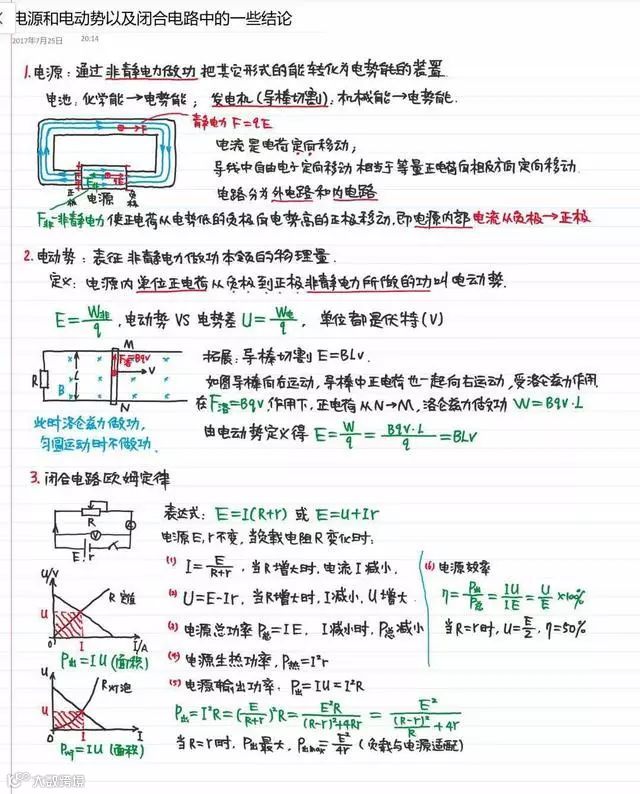 电源和电动势以及闭合电路中的一些结论
2017年7月25日 20:14
1.电源：通过非静电力做功把其它形式的能转化为电势能的装置
电池：化学能→电势能； 发电机(导棒切割)：机械能→电势能.
静电力 F=qE
电流是电荷定向移动；
导线中自由电子定向移动相当于等量正电荷向相反方向定向移动
电路分为外电路和内电路
正极 电源 负极
F非-非静电力 使正电荷从电势低的负极向电势高的正极移动，即电源内部电流从负极→正极
2.电动势：表征非静电力做功本领的物理量.
定义：电源内单位正电荷从负极到正极非静电力所做的功叫电动势.
E=W非/q ，电动势 VS 电势差 U=W电/q ， 单位都是伏特(V)
M
R B L F洛=Bqv V
N
拓展：导棒切割 E=BLv.
如图导棒向右运动，导棒中正电荷也一起向右运动，受洛仑兹力作用
在F洛=Bqv作用下，正电荷从N→M，洛仑兹力做功 W=Bqv·L
由电动势定义得 E=W/q=Bqv·L/q=BLv
此时洛仑兹力做功，
匀圆运动时不做功.
3.闭合电路欧姆定律
R
A
V
E r
表达式：E=I(R+r) 或 E=U+Ir
电源E，r不变，当负载电阻R变化时：
(1) I=E/(R+r) ，当R增大时，电流I减小.
(2) U=E-Ir，当R增大时，I减小，U增大
(3) 电源总功率P总=IE， I减小时，P总减小
(4) 电源生热功率，P热=I²r
(5) 电源输出功率，P出=IU=I²R
P出=I²R=(E/(R+r))²R=E²R/((R-r)²+4Rr)=E²/((R-r)²/R+4r)
当R=r时，P出最大，P出max=E²/4r (负载与电源适配)
(6) 电源效率
η=P出/P总=IU/IE=U/E×100%
当R=r时，U=E/2，η=50%
U/V
R定值
U
0 I I/A
P出=IU(面积)
U
R灯泡
U
0 I I
=IU(面积)
大数跨境